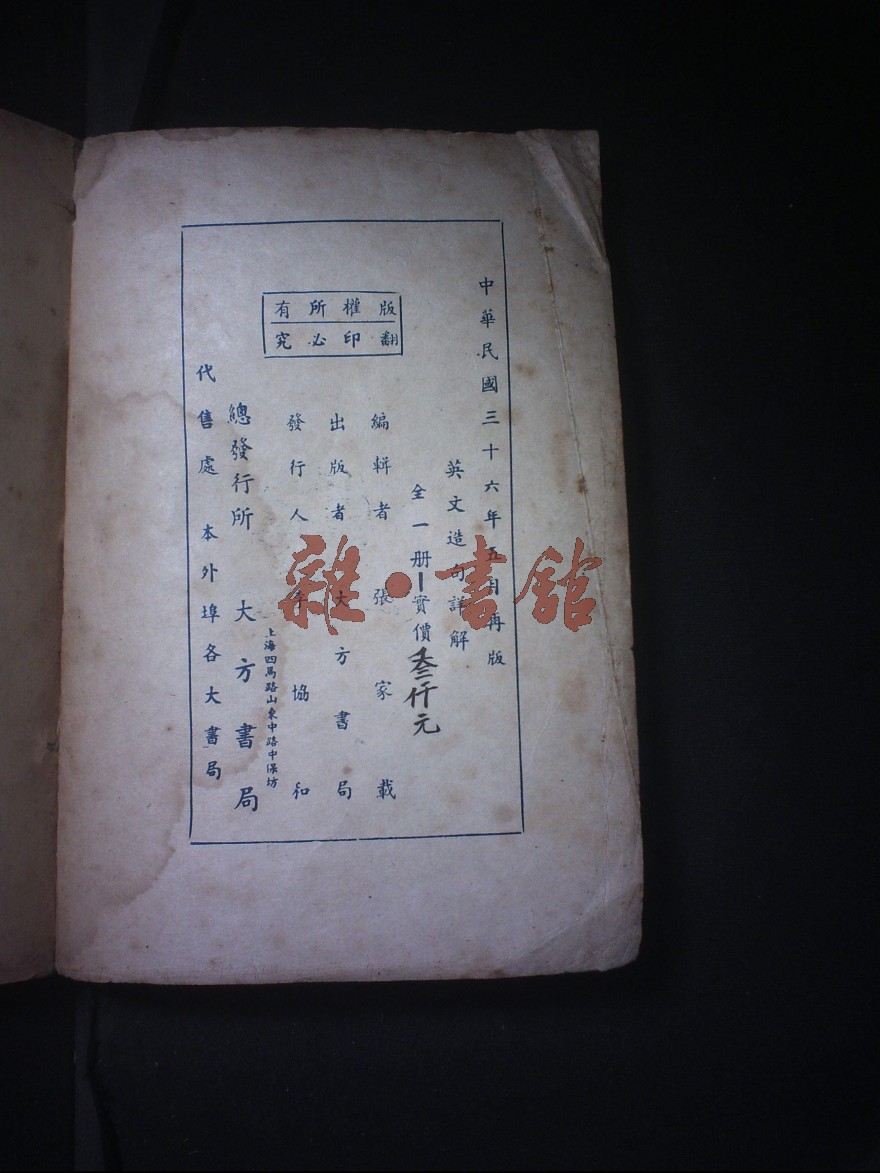 中華民國三十六年五月再版
英文造句詳解
全一册 實價叁仟元
版權所有
翻印必究
編輯者 張家載
出版者 大方書局
發行人 協和
上海四馬路山東中路中保坊
總發行所 大方書局
代售處 本外埠各大書局
雜·書館